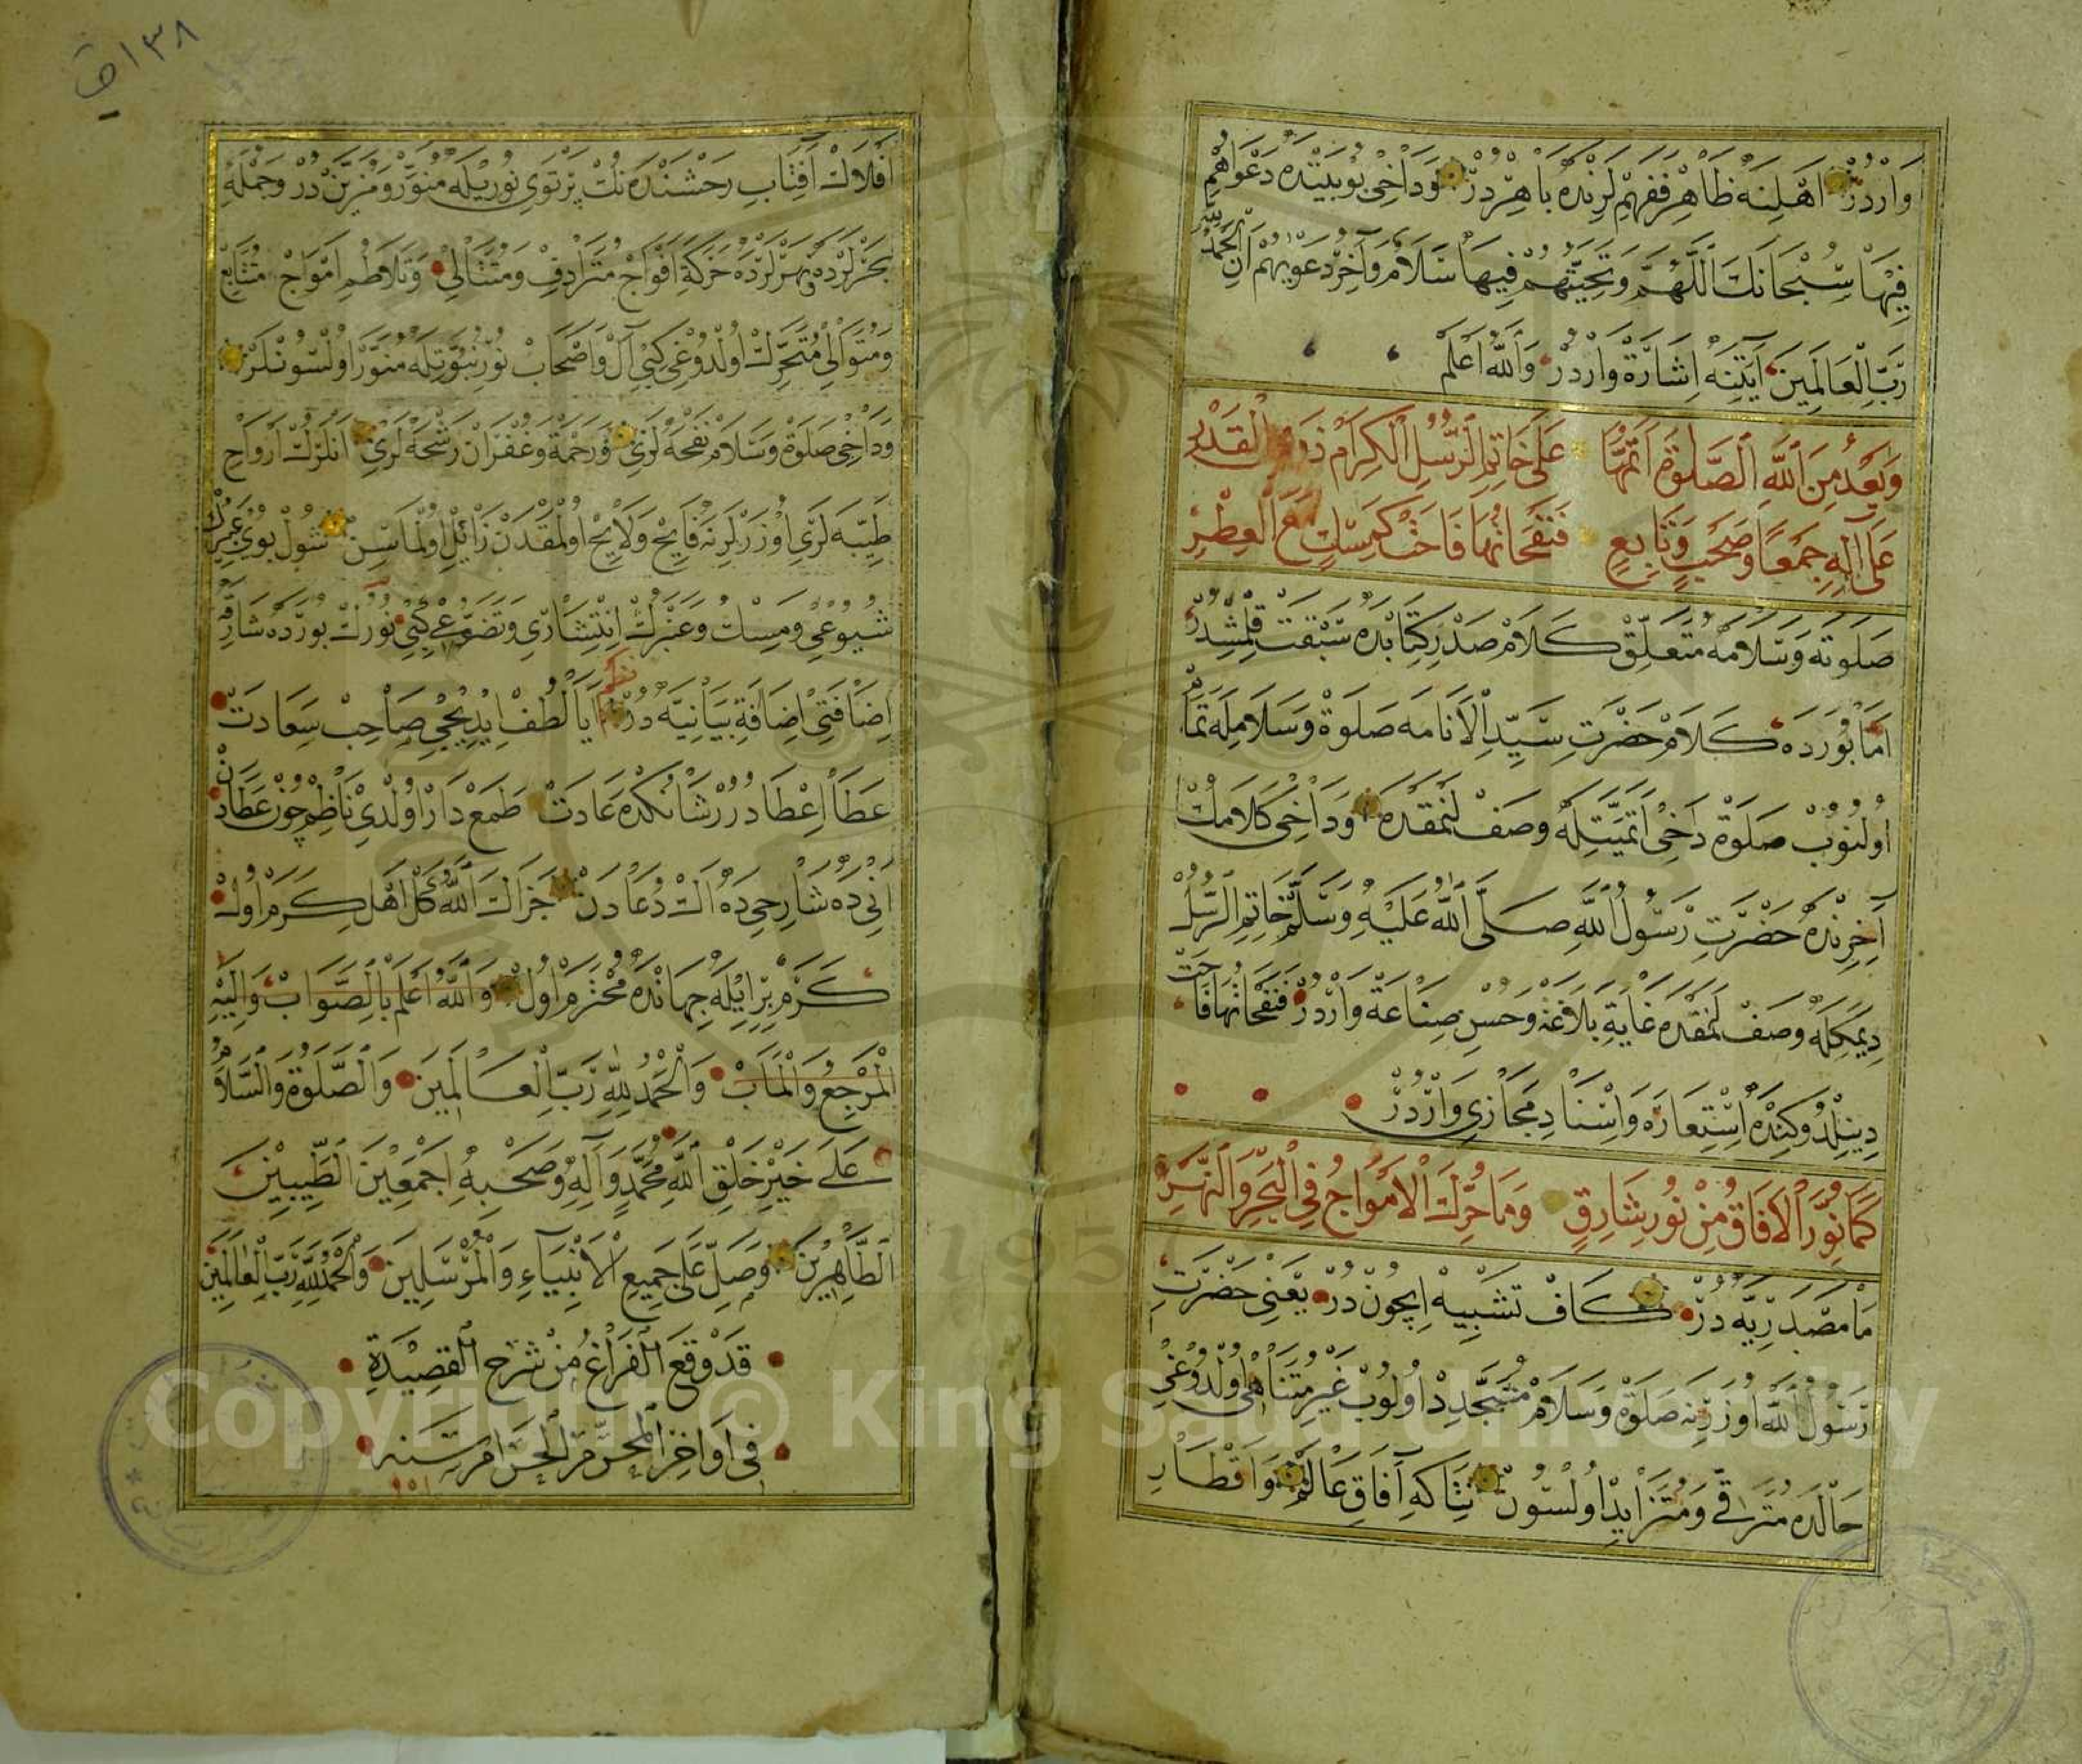 وَارْدُرْ اَهْلِنَه ظَاهِرْ فَفَهِمْ لَرِنْدَه بَاهِرْدِرْ وَدَاخِى بُوبَيْتْدَه دَعْوَاهُمْ
فِيهَا سُبْحَانَكَ اَللَّهُمَّ وَتَحِيَّتُهُمْ فِيهَا سَلَامٌ وَآخِرُ دَعْوَيهُمْ اَنِ الْحَمْدُ لِلَّهِ
رَبِّ الْعَالَمِينَ آيَتِنَه اِشَارَة وَارْدُرْ وَاللّٰهُ اَعْلَمُ
وَبَعْدُ مِنَ اللّٰهِ الصَّلٰوةُ اَتَمُّهَا عَلَى خَاتِمِ الرُّسُلِ الْكِرَامِ ذَوِى الْقَدْرِ
عَلَى آلِهِ جَمْعًا وَصَحْبٍ وَتَابِعٍ فَنَفَحَاتُهَا فَاحَتْ كَمِسْكٍ مَعَ الْعِطْرِ
صَلَوتَه وَسَلَامَه مُتَعَلِّقْ كَلَامْ صَدْرِ كِتَابْدَه سَبْقَتْ قِلْمِشْدُرْ
اَمَّا بُورَدَه كَلَامْ حَضْرَتِ سَيِّدِ الْاَنَامَه صَلَوة وَسَلَامِلَه تَمَامْ
اُولُنُوبْ صَلَوة دَاخِى اَتَمِّيَّتِلَه وَصَفْ لَنْمَقْدَه وَدَاخِى كَلَامُكْ
آخِرِنْدَه حَضْرَتِ رَسُولُ اللّٰهِ صَلَّى اللّٰهُ عَلَيْهِ وَسَلَّمْ خَاتِمِ الرُّسُلْ
دِيمَكِلَه وَصَفْ لَنْمَقْدَه غَايَةِ بَلَاغَة وَحُسْنِ صِنَاعَة وَارْدُرْ فَنَفَحَاتُهَا فَاحَتْ
دِينِلْدُوكِنْدَه اِسْتِعَارَه وَاِسْنَادِ مَجَازِى وَارْدُرْ
كَمَا نُوِّرَ الْآفَاقُ مِنْ نُورِ شَارِقٍ وَمَا حُرِّكَ الْاَمْوَاجُ فِى الْبَحْرِ وَالنَّهْرِ
مَا مَصْدَرِيَّه دُرْ كَافْ تَشْبِيهْ اِيچُونْ دُرْ يَعْنِى حَضْرَتِ
رَسُولُ اللّٰه اُوزَرِنَه صَلَوة وَسَلَامْ مُتَجَدِّدْ اُولُوبْ غَيْرِ مُتَنَاهِى اُولْدُوغِى
حَالْدَه مُتَرَقِّى وَمُتَزَايِدْ اُولْسُونْ نِتَاكِه آفَاقِ عَالَمْ وَاَقْطَارِ
اَفْلَاكْ آفِتَابِ رَخْشَنْدَه نُكْ پَرْتَوِى نُورِيلَه مُنَوَّرْ وَمُزَيَّنْ دُرْ وَجُمْلَه
بَحْرْلَرْدَه وَنَهْرْلَرْدَه حَرَكَةِ اَفْوَاجْ مُتَرَادِفْ وَمُتَتَالِى وَتَلَاطُمِ اَمْوَاجْ مُتَتَابِعْ
وَمُتَوَالِى مُتَحَرِّكْ اُولْدُوغِى كِبِى آلْ وَاَصْحَابْ نُورِ نُبُوَّتِلَه مُنَوَّرْ اُولْسُونْلَرْ
وَدَاخِى صَلَوة وَسَلَامْ نَفْحَه لَرِى وَرَحْمَة وَغُفْرَانْ رَشْحَه لَرِى اَنْلَرُكْ اَرْوَاحِ
طَيِّبَه لَرِى اُوزَرْلَرِنَه فَايِحْ وَلَايِحْ اُولْمَقْدَنْ زَائِلْ اُولْمَاسِنْ شُولْ بُوىِ عِطْرُكْ
شُيُوعِى وَمِسْكْ وَعَنْبَرُكْ اِنْتِشَارِى وَتَضَوُّعِى كِبِى نُورُكْ بُورَدَه شَارِقَه
اِضَافَتِى اِضَافَةِ بَيَانِيَّه دُرْ نظم اَيَا لُطْفْ اِيدِيجِى صَاحِبْ سَعَادَتْ
عَطَا اِعْطَا دُرُرْ شَانُكْدَه عَادَتْ طَمَعْ دَارْ اُولْدِى نَاظِمْ چُونْ عَطَادَنْ
اَنِى دَه شَارِحِى دَه اَكْ دُعَادَنْ جَزَاكَ اللّٰهُ كُلْ اَهْلِ كَرَمْ اُولْ
كَرَمْ بِرْ اِيْلَه جِهَانْدَه مُحْتَرَمْ اُولْ وَاللّٰهُ اَعْلَمُ بِالصَّوَابْ وَاِلَيْهِ
الْمَرْجِعُ وَالْمَآبْ وَالْحَمْدُ لِلّٰهِ رَبِّ الْعَالَمِينَ وَالصَّلٰوةُ وَالسَّلَامُ
عَلَى خَيْرِ خَلْقِ اللّٰهِ مُحَمَّدٍ وَآلِهِ وَصَحْبِهِ اَجْمَعِينَ الطَّيِّبِينَ
الطَّاهِرِينَ وَصَلِّ عَلَى جَمِيعِ الْاَنْبِيَاءِ وَالْمُرْسَلِينَ وَالْحَمْدُ لِلّٰهِ رَبِّ الْعَالَمِينَ
قَدْ وَقَعَ الْفَرَاغُ مِنْ شَرْحِ الْقَصِيدَةِ
فِى اَوَاخِرِ الْمُحَرَّمِ الْحَرَامِ سَنَه
١٣٨
Copyright © King Saud University